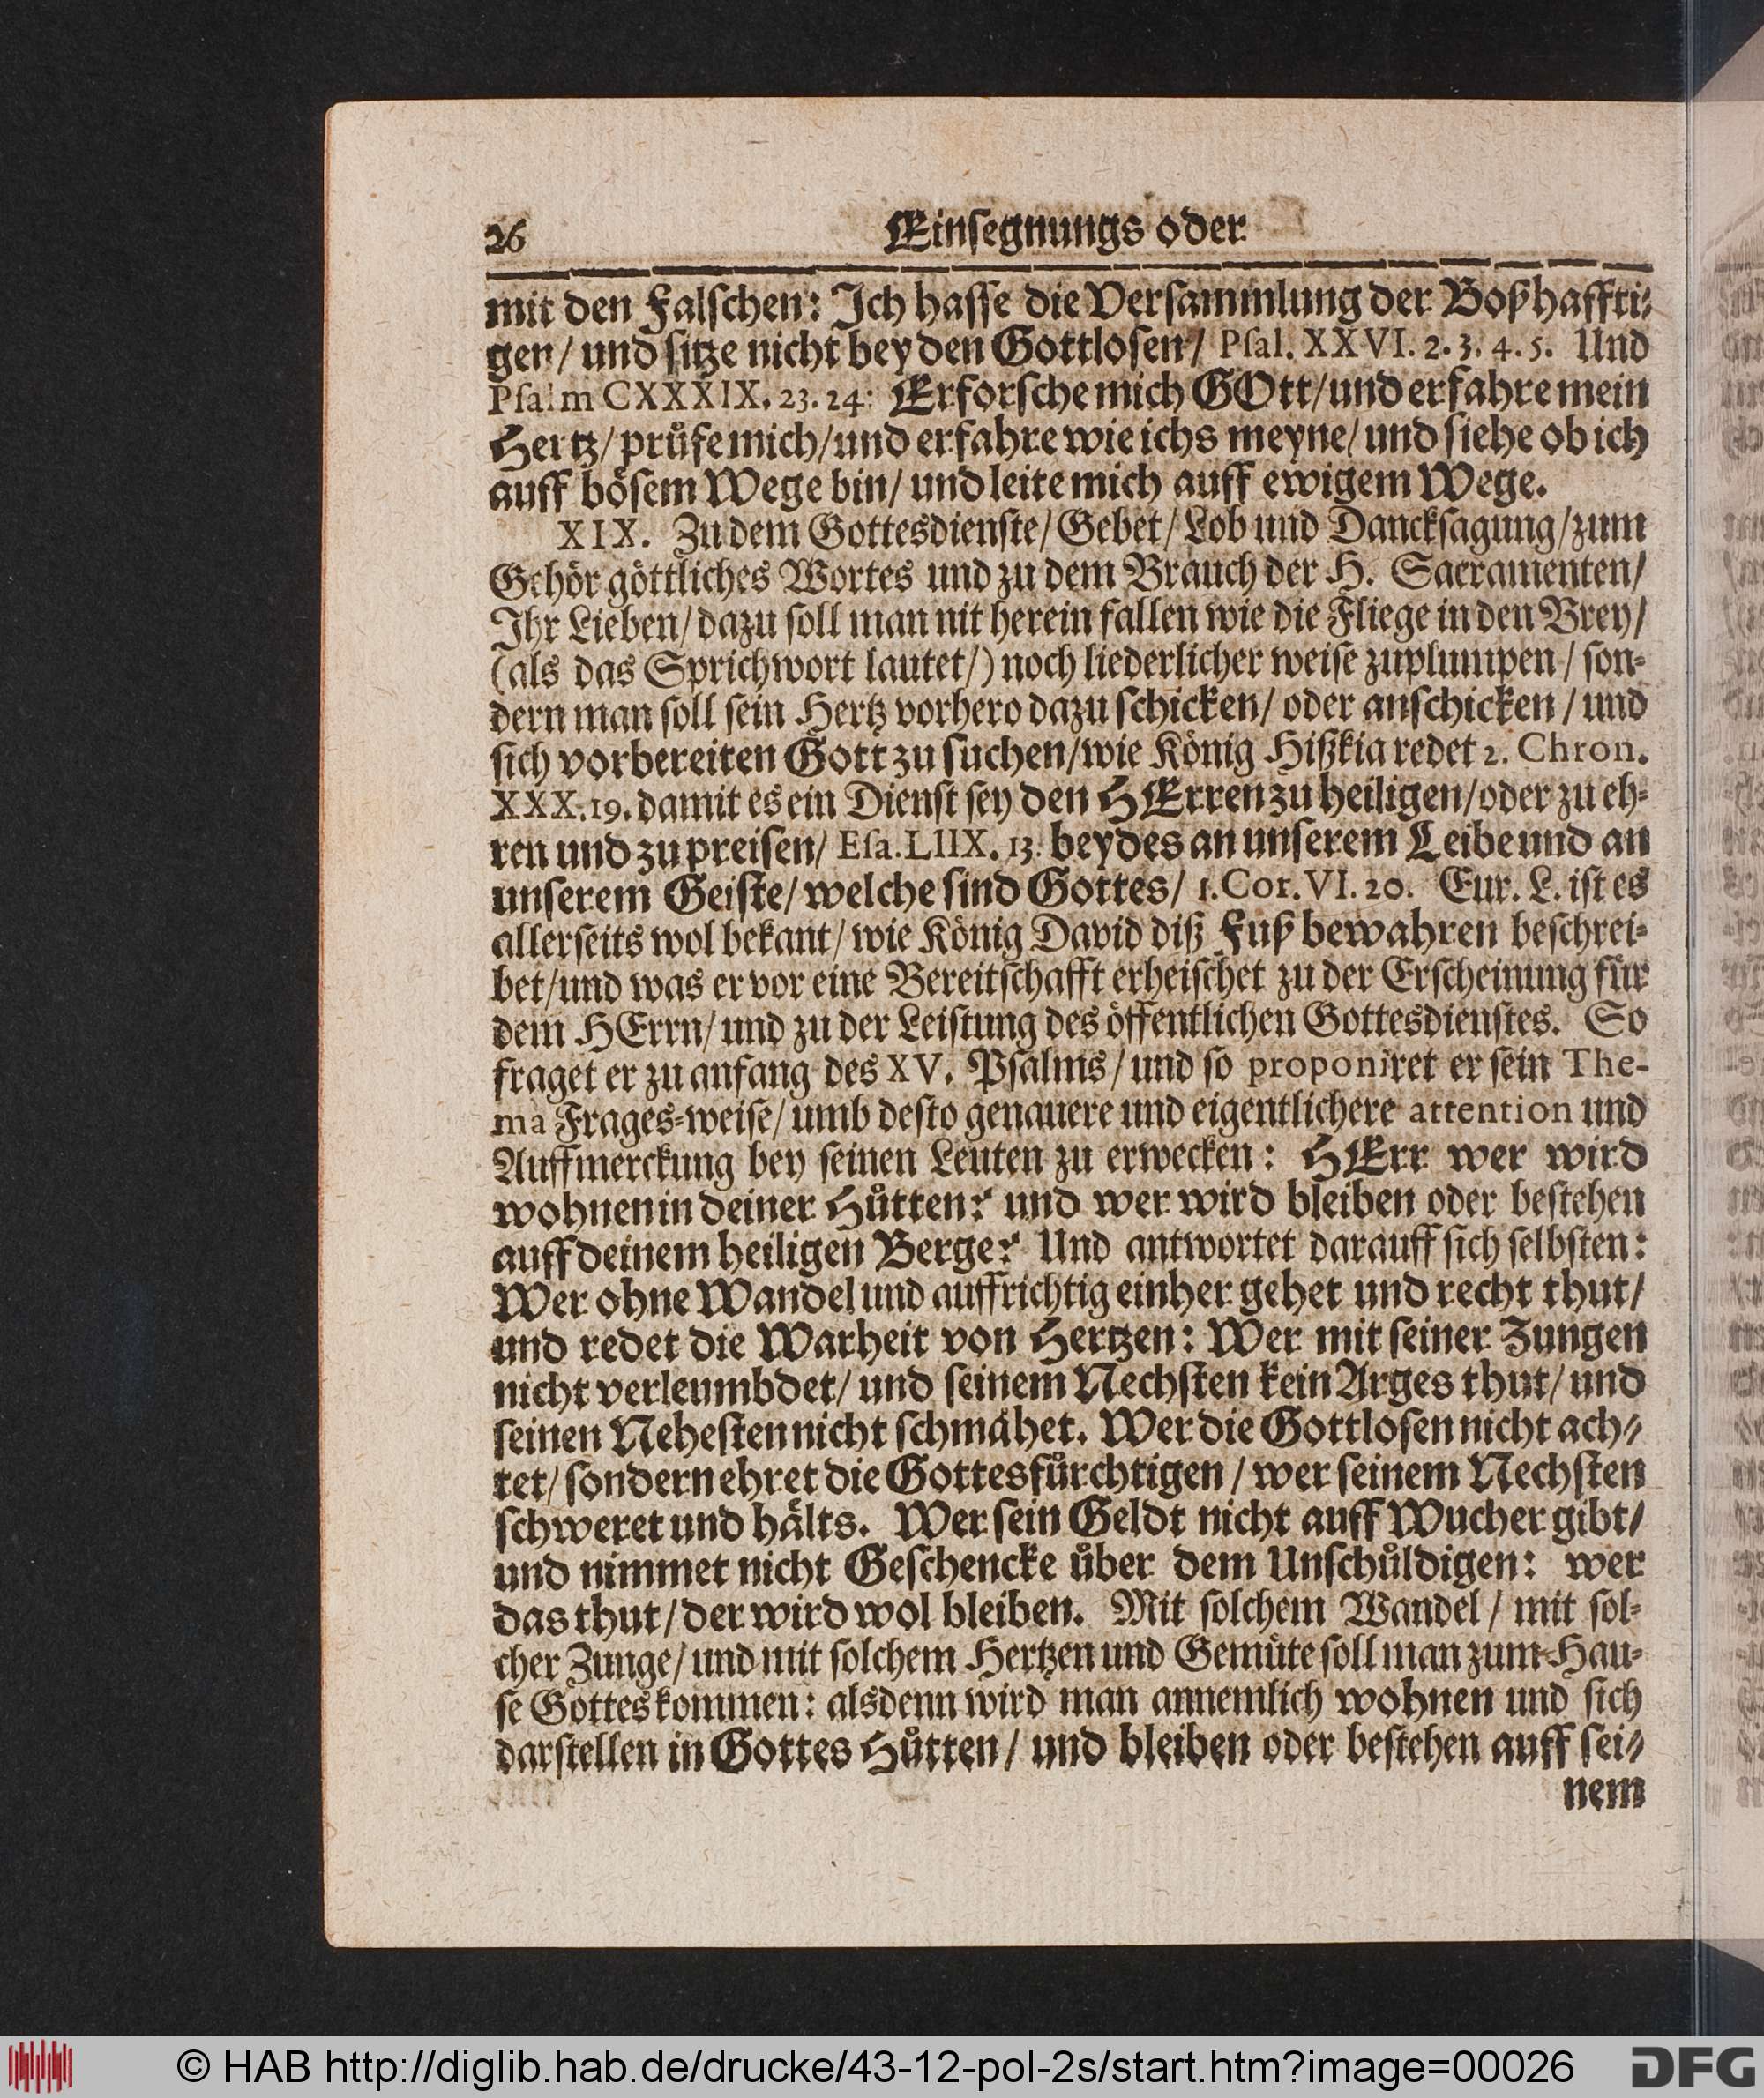 26 Einſegnungs oder
mit den Falſchen: Ich haſſe die Verſammlung der Boßhaffti-
gen/ und ſitze nicht bey den Gottloſen/ Pſal. XXVI. 2. 3. 4. 5. Und
Pſalm CXXXIX. 23. 24: Erforſche mich GOtt/ und erfahre mein
Hertz/ pruͤfe mich/ und erfahre wie ichs meyne/ und ſiehe ob ich
auff boͤſem Wege bin/ und leite mich auff ewigem Wege.
XIX. Zu dem Gottesdienſte/ Gebet/ Lob und Danckſagung/ zum
Gehoͤr goͤttliches Wortes und zu dem Brauch der H. Sacramenten/
Ihr Lieben/ dazu ſoll man nit herein fallen wie die Fliege in den Brey/
(als das Sprichwort lautet/) noch liederlicher weiſe zuplumpen/ ſon-
dern man ſoll ſein Hertz vorhero dazu ſchicken/ oder anſchicken/ und
ſich vorbereiten Gott zu ſuchen/ wie Koͤnig Hißkia redet 2. Chron.
XXX. 19. damit es ein Dienſt ſey den HErren zu heiligen/ oder zu eh-
ren und zu preiſen/ Eſa. LIIX. 13. beydes an unſerem Leibe und an
unſerem Geiſte/ welche ſind Gottes/ 1. Cor. VI. 20. Eur. L. iſt es
allerſeits wol bekant/ wie Koͤnig David diß Fuß bewahren beſchrei-
bet/ und was er vor eine Bereitſchafft erheiſchet zu der Erſcheinung fuͤr
dem HErrn/ und zu der Leiſtung des oͤffentlichen Gottesdienſtes. So
fraget er zu anfang des XV. Pſalms/ und ſo proponiret er ſein The-
ma Frages-weiſe/ umb deſto genauere und eigentlichere attention und
Auffmerckung bey ſeinen Leuten zu erwecken: HErr wer wird
wohnen in deiner Huͤtten? und wer wird bleiben oder beſtehen
auff deinem heiligen Berge? Und antwortet darauff ſich ſelbſten:
Wer ohne Wandel und auffrichtig einher gehet und recht thut/
und redet die Warheit von Hertzen: Wer mit ſeiner Zungen
nicht verleumbdet/ und ſeinem Nechſten kein Arges thut/ und
ſeinen Neheſten nicht ſchmaͤhet. Wer die Gottloſen nicht ach-
tet/ ſondern ehret die Gottesfuͤrchtigen/ wer ſeinem Nechſten
ſchweret und haͤlts. Wer ſein Geldt nicht auff Wucher gibt/
und nimmet nicht Geſchencke uͤber dem Unſchuͤldigen: wer
das thut/ der wird wol bleiben. Mit ſolchem Wandel/ mit ſol-
cher Zunge/ und mit ſolchem Hertzen und Gemuͤte ſoll man zum Hau-
ſe Gottes kommen: alsdenn wird man annemlich wohnen und ſich
darſtellen in Gottes Huͤtten/ und bleiben oder beſtehen auff ſei-
nem
© HAB http://diglib.hab.de/drucke/43-12-pol-2s/start.htm?image=00026 DFG